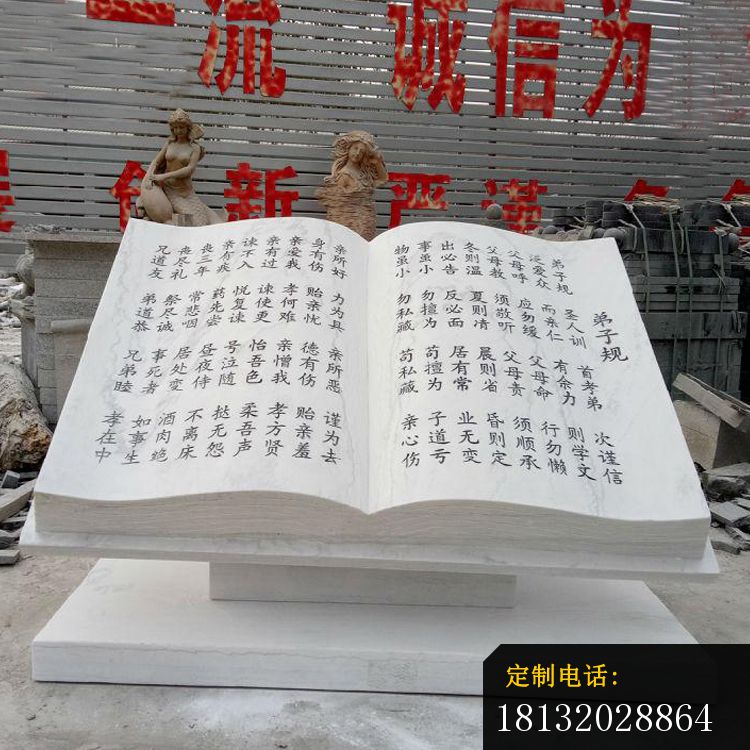 一流 诚信为
创新 严谨务
弟子规
弟子规 圣人训 首孝弟 次谨信
泛爱众 而亲仁 有余力 则学文
父母呼 应勿缓 父母命 行勿懒
父母教 须敬听 父母责 须顺承
冬则温 夏则凊 晨则省 昏则定
出必告 反必面 居有常 业无变
事虽小 勿擅为 苟擅为 子道亏
物虽小 勿私藏 苟私藏 亲心伤
亲所好 力为具 亲所恶 谨为去
身有伤 贻亲忧 德有伤 贻亲羞
亲爱我 孝何难 亲憎我 孝方贤
亲有过 谏使更 怡吾色 柔吾声
谏不入 悦复谏 号泣随 挞无怨
亲有疾 药先尝 昼夜侍 不离床
丧三年 常悲咽 居处变 酒肉绝
丧尽礼 祭尽诚 事死者 如事生
兄道友 弟道恭 兄弟睦 孝在中
定制电话:
18132028864